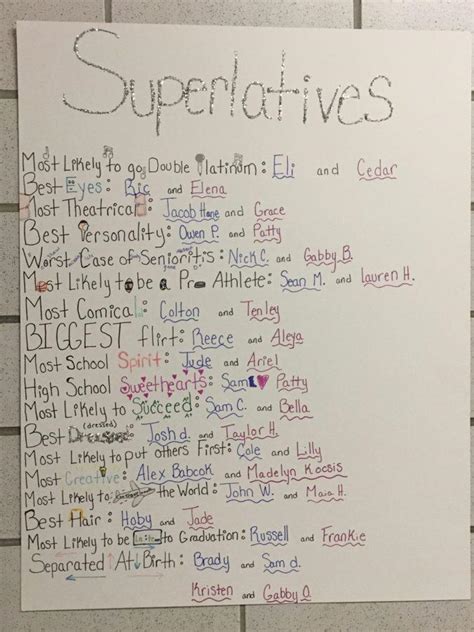 Superlatives
Most Likely to go Double Platinum: Eli and Cedar
Best Eyes: Ric and Elena
Most Theatrical: Jacob Hane and Grace
Best Personality: Owen P. and Patty
Worst Case of Senioritis: Nick C. and Gabby B.
Most Likely to be a Pro Athlete: Sean M. and Lauren H.
Most Comical: Colton and Tenley
BIGGEST flirt: Reece and Aleya
Most School Spirit: Jude and Ariel
High School Sweethearts: Sam Patty
Most Likely to Succeed: Sam C. and Bella
(dressed)
Best : Josh d. and Taylor H.
Most Likely to put others First: Cole and Lilly
Most Creative: Alex Babcok and Madelyn Kocsis
Most Likely to the World: John W. and Maia H.
Best Hair: Haby and Jade
Most Likely to be late to Graduation: Russell and Frankie
Separated At Birth: Brady and Sam d.
Kristen and Gabby O.